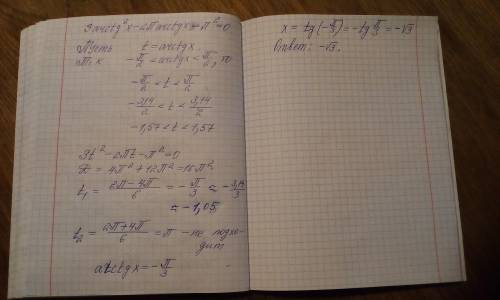 3 arctg²x - 2π arctgx - π² = 0
Пусть t = arctgx.
Т.к -π/2 < arctgx < π/2, то
-π/2 < t < π/2
-3,14/2 < t < 3,14/2
-1,57 < t < 1,57
3t² - 2πt - π² = 0
D = 4π² + 12π² = 16π²
t₁ = (2π - 4π)/6 = -π/3 ≈ -3,14/3
≈ -1,05
t₂ = (2π + 4π)/6 = π - не подхо-
дит
arctgx = -π/3
x = tg(-π/3) = -tg π/3 = -√3
Ответ: -√3.